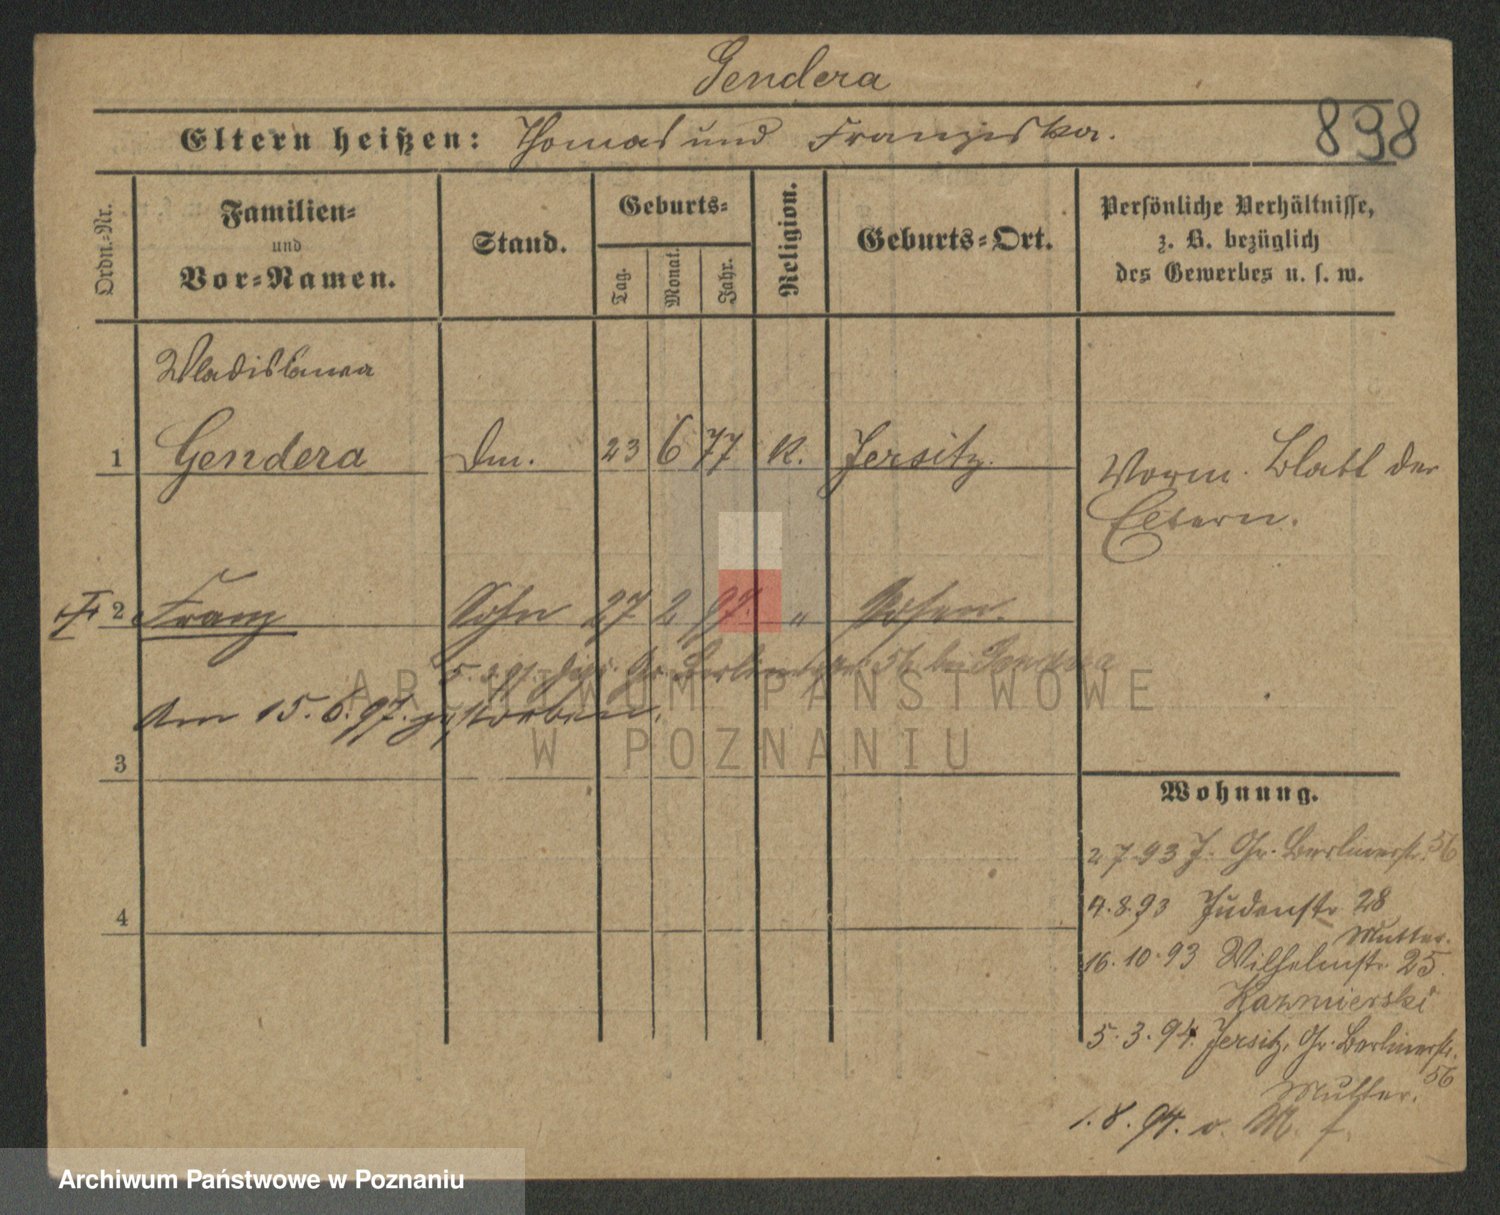 Gendera
898
Eltern heißen: Thomas und Franziska.
Ordn.-Nr.
Familien-
und
Vor-Namen.
Stand.
Geburts-
Tag.
Monat.
Jahr.
Religion.
Geburts-Ort.
Persönliche Verhältnisse,
z. B. bezüglich
des Gewerbes u. s. w.
Wladislawa
1 Gendera Dm. 23 6 77 K. Jersitz.
Vorm. Blatt der
Eltern.
2 Franz Sohn 27 2 97. " Posen.
5.3.97. Gr. Berlinerstr. 56 bei Gendera
Am 15.6.97. gestorben.
3
4
Wohnung.
2 7 93 J. Gr. Berlinerstr. 56
4.8.93 Judenstr 28
Mutter.
16.10.93 Wilhelmstr. 25.
Kazmierski
5.3.94. Jersitz, Gr. Berlinerstr.
56
Mutter.
1.8.94. v. M. f.
ARCHIWUM PAŃSTWOWE
W POZNANIU
Archiwum Państwowe w Poznaniu